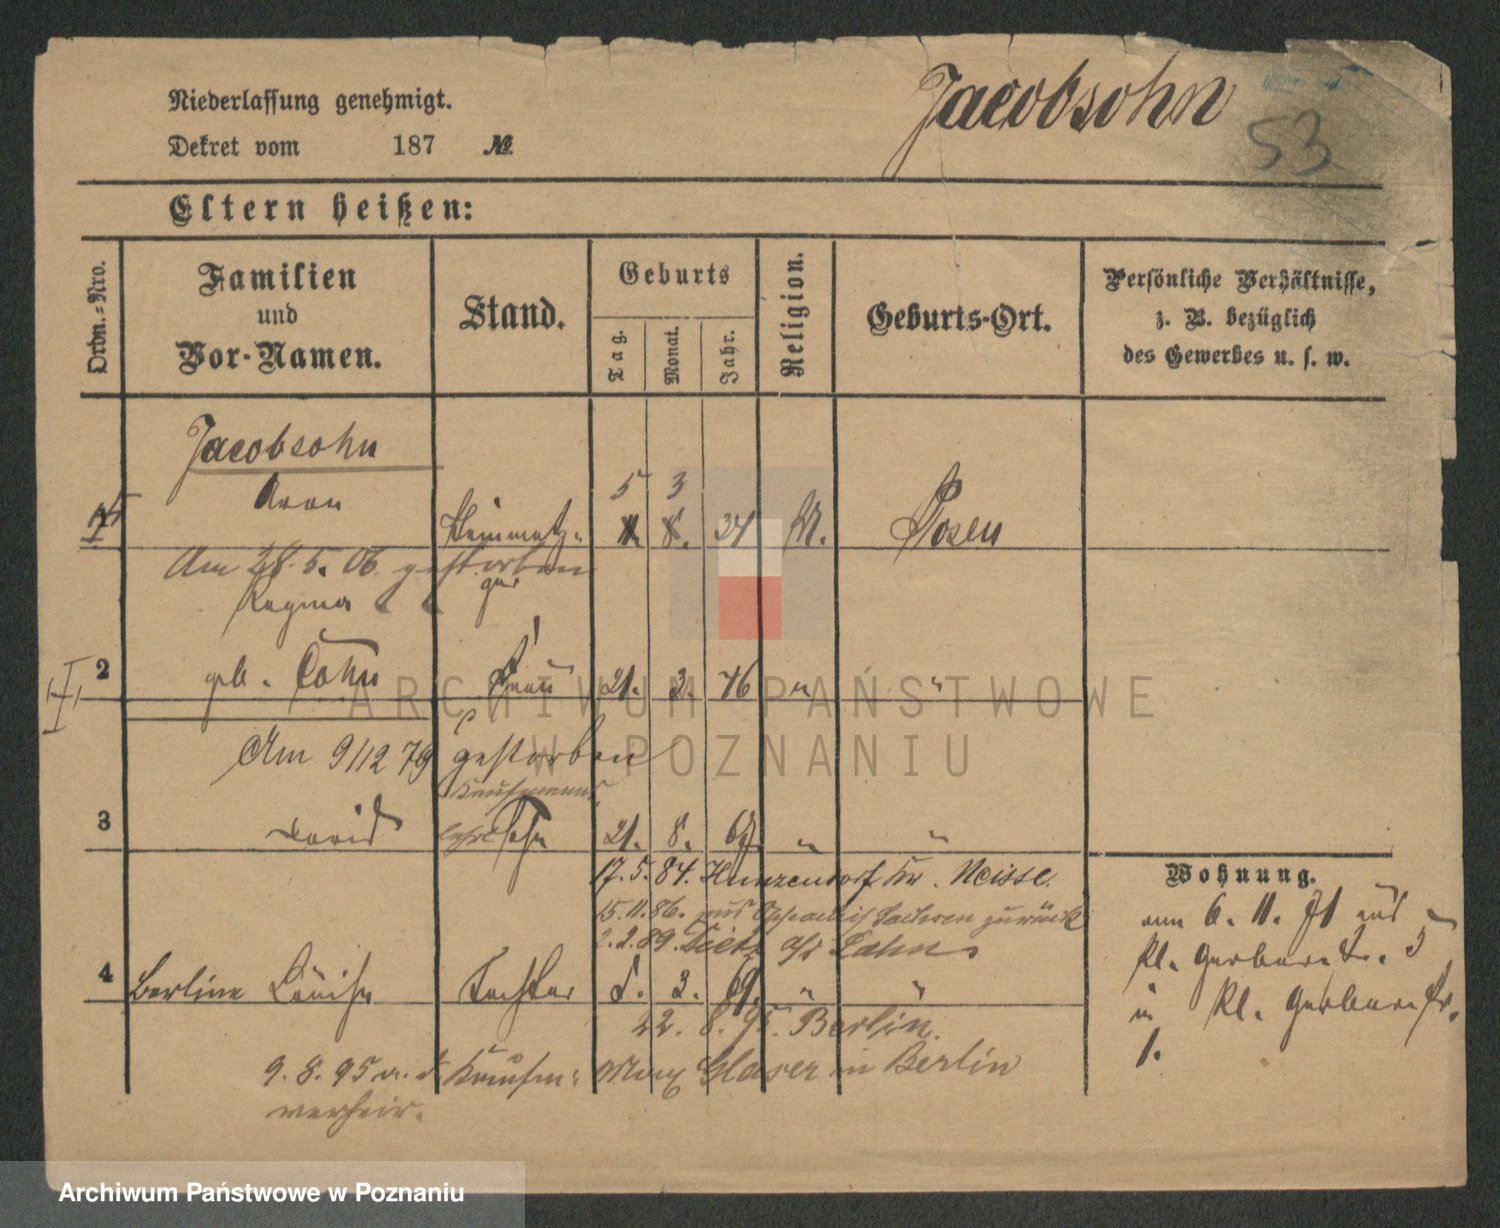 Jacobsohn
53
Niederlassung genehmigt.
Dekret vom 187 №
Eltern heißen:
Ordn.-Nro.
Familien
und
Vor-Namen.
Stand.
Geburts
Tag.
Monat.
Jahr.
Religion.
Geburts-Ort.
Persönliche Verhältnisse,
z. B. bezüglich
des Gewerbes u. s. w.
Jacobsohn
Aron
5 3
8. 34 M. Posen
Am 28.5.06 gestorben
Regina
2 geb. Cohn Frau 21. 3. 46 " "
Am 9/12 79 gestorben
Kaufmanns
3 David Sohn 21. 8. 67 " "
17.5.84. Hunzendorf Kr. Neisse.
15.11.86. aus zurück
2.2.89. Dietz a/ Lahn
4 Berline Louise Tochter 5. 3. 69. " "
22. 8. 95. Berlin.
9. 8. 95 m. d. Kaufm: Max Glaser in Berlin
verheir.
Wohnung.
am 6. 11. 71 aus
Kl. Gerberstr. 3
in Kl. Gerberstr.
1.
ARCHIWUM PAŃSTWOWE
W POZNANIU
Archiwum Państwowe w Poznaniu